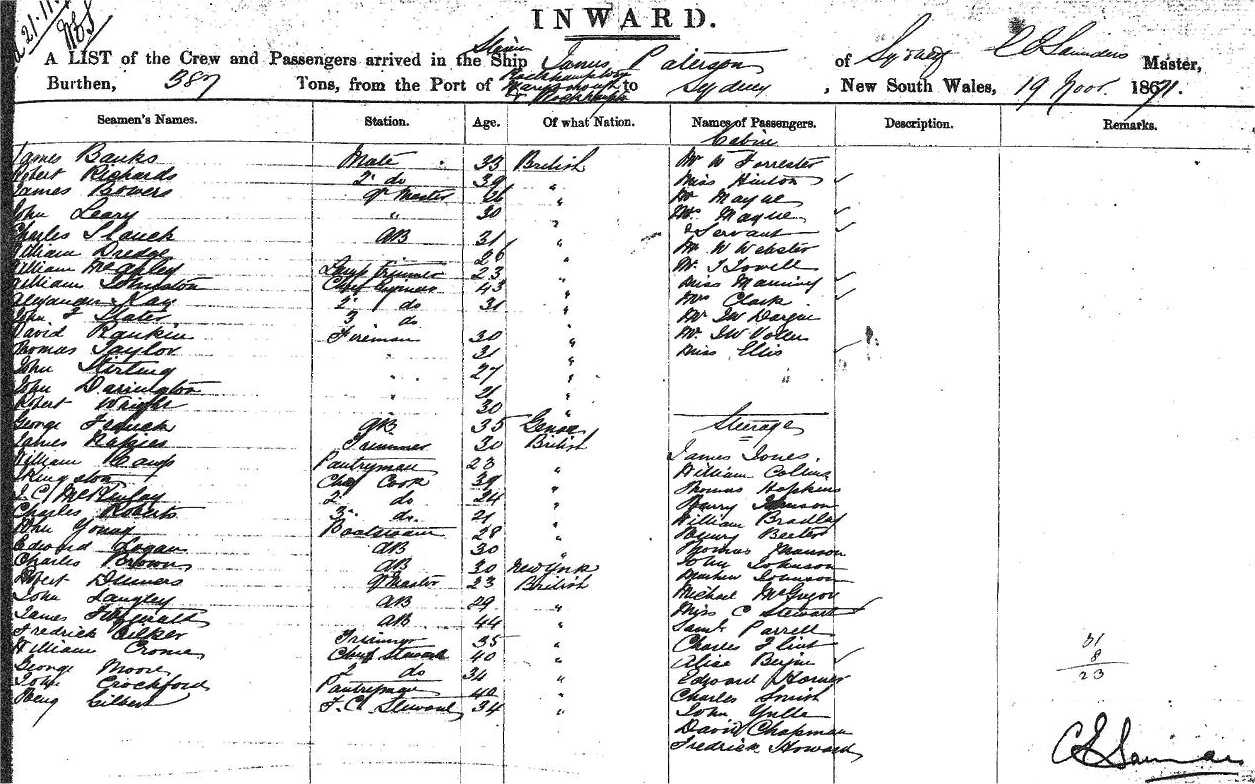 21-11-
INWARD.
A LIST of the Crew and Passengers arrived in the Ship Steam James Paterson of Sydney C E Saunders Master,
Burthen, 387 Tons, from the Port of Rockhampton Maryborough to Sydney, New South Wales, 19 Novr. 1871.
Seamen's Names. Station. Age. Of what Nation. Names of Passengers. Description. Remarks.
Cabin
James Banks Mate 33 British Mr W Forrester
Robert Richards 2d do 39 " Miss Hinton ✓
James Bowers Qr Master 26 " Mr Mayne
John Leary " 30 " Mrs Mayne ✓
Charles AB 31 " & Servant ✓
William Dredge 26 " Mr W Webster
William Lamp Trimmer 23 " Mr T Lovell
William Johnston Chief 43 " Miss Manning ✓
Alexander Kay 2d do 31 " Mrs Clark ✓
John F Slater 3 do "
David Rankin Fireman 30 "
Thomas Taylor " 31 " Miss Ellis ✓
John Stirling " 27 "
John Darrington " 21 "
Robert Wright " 30 "
George AB 35 Genoa Steerage
James Napier Trimmer 30 British James Jones
William Camp Pantryman 23 " William Collins
Kingston Chf Cook 39 " Thomas Hopkins
J. C. McKinlay 2d do 24 " Henry Johnson
Charles Roberts 3d do. 21 " William Bradley
John Young Boatswain 28 " Henry
Edward Logan AB 30 " Thomas Manson
Charles Brown AB 30 New York John Johnson
Robert Qr Master 23 British Johnson
John Langley AB 29 " Michael McGregor
James Fitzgerald AB 44 " Miss C Stewart ✓
Fredrick Trimmer 35 " Saml Parrell
William Crome Chief Steward 40 " Charles Flint
George Moore 2 do 34 " Alice ✓
John Crockford Pantryman 40 " Edward Horner
Benj Gilbert F.C. Steward 34 " Charles Smith
John
David Chapman
Fredrick Howard
31
8
23
C E Saunders